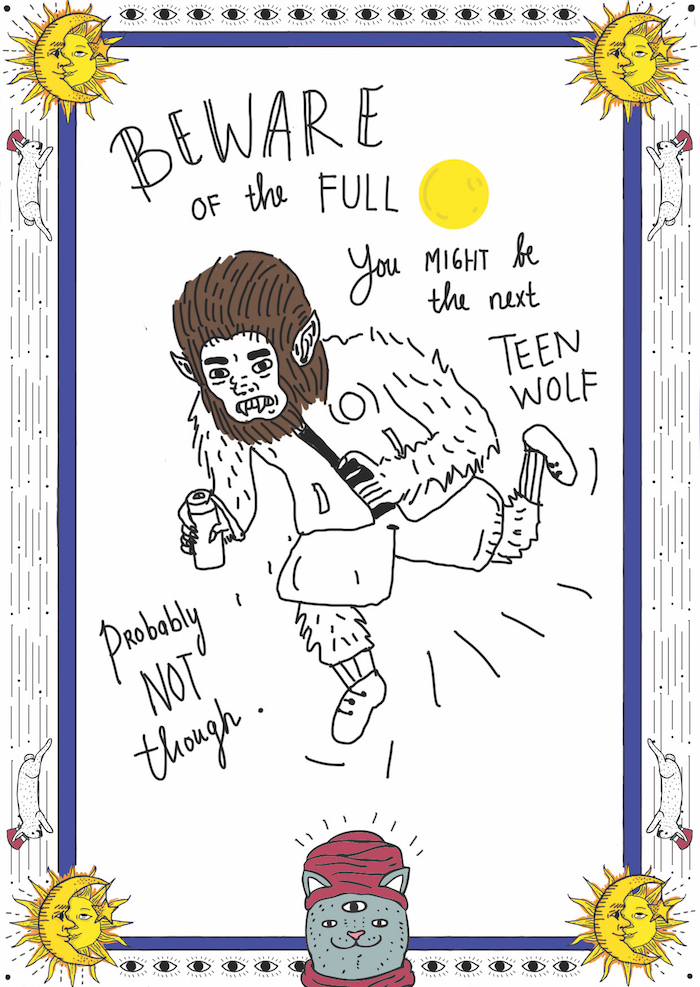 BEWARE
OF the FULL
You MIGHT be
the next
TEEN
WOLF
Probably
NOT
though.